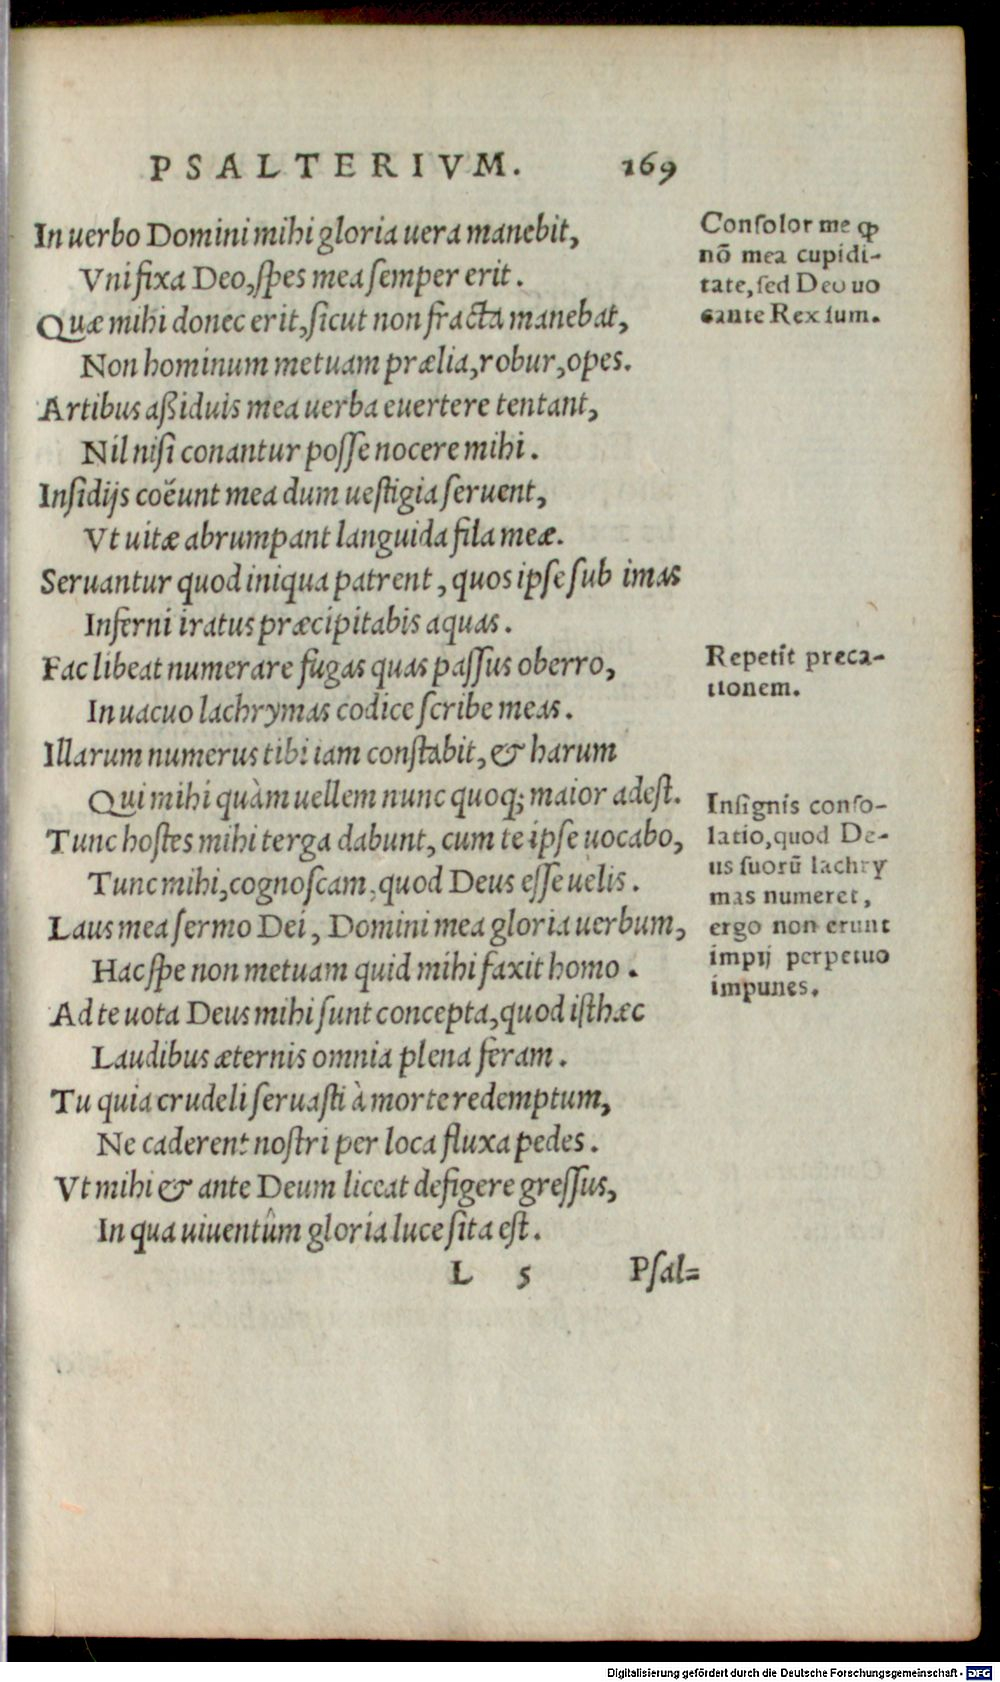 PSALTERIVM. 169
In uerbo Domini mihi gloria uera manebit,
Vni fixa Deo, ſpes mea ſemper erit.
Quæ mihi donec erit, ſicut non fracta manebat,
Non hominum metuam prælia, robur, opes.
Artibus aßiduis mea uerba euertere tentant,
Nil niſi conantur poſſe nocere mihi.
Inſidijs coëunt mea dum ueſtigia ſeruent,
Vt uitæ abrumpant languida fila meæ.
Seruantur quod iniqua patrent, quos ipſe ſub imas
Inferni iratus præcipitabis aquas.
Fac libeat numerare fugas quas paſſus oberro,
In uacuo lachrymas codice ſcribe meas.
Illarum numerus tibi iam conſtabit, & harum
Qui mihi quàm uellem nunc quoq; maior adeſt.
Tunc hoſtes mihi terga dabunt, cum te ipſe uocabo,
Tunc mihi, cognoſcam, quod Deus eſſe uelis.
Laus mea ſermo Dei, Domini mea gloria uerbum,
Hac ſpe non metuam quid mihi faxit homo.
Ad te uota Deus mihi ſunt concepta, quod iſthæc
Laudibus æternis omnia plena feram.
Tu quia crudeli ſeruaſti à morte redemptum,
Ne caderent noſtri per loca fluxa pedes.
Vt mihi & ante Deum liceat defigere greſſus,
In qua uiuentûm gloria luce ſita eſt.
L 5 Pſal=
Conſolor me ꝙ
nõ mea cupidi-
tate, ſed Deo uo
cante Rex ſum.
Repetit preca-
tionem.
Inſignis conſo-
latio, quod De-
us ſuorũ lachry
mas numeret,
ergo non erunt
impij perpetuo
impunes.
Digitalisierung gefördert durch die Deutsche Forschungsgemeinschaft - DFG